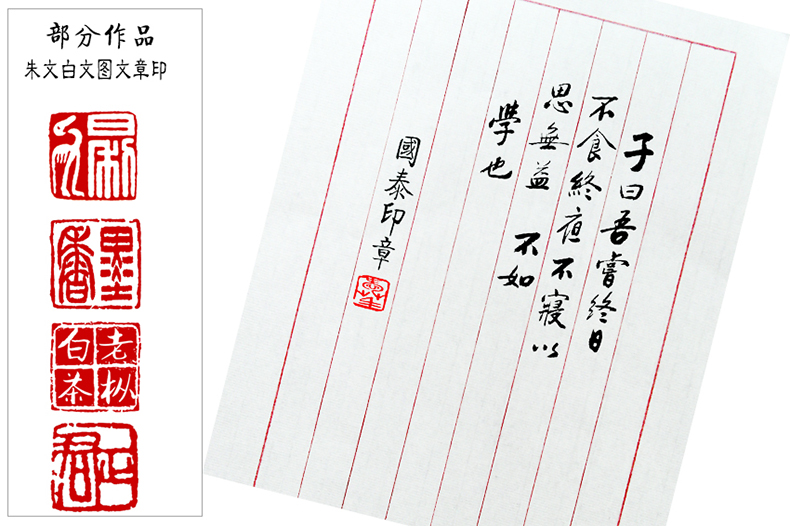 部分作品
朱文白文图文章印
老枞
白茶
子曰吾嘗終日
不食終夜不寢以
思無益 不如
學也
國泰印章